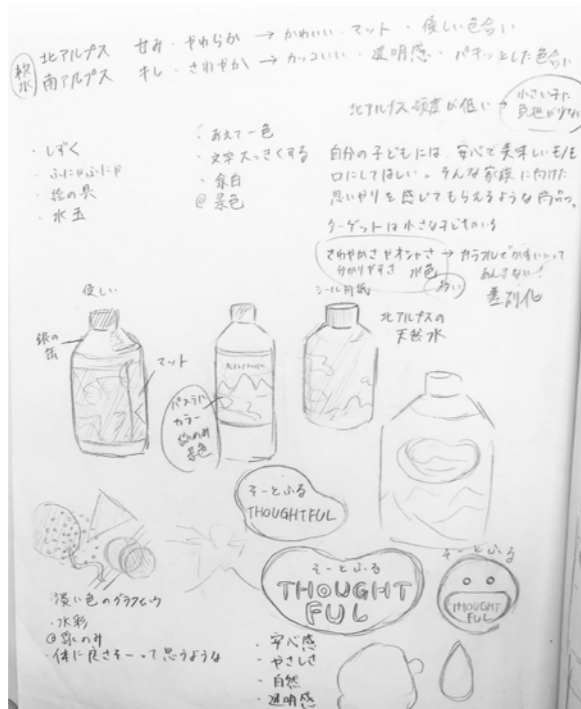 軟水
北アルプス 甘み・やわらか → かわいい・マット・優しい色合い
南アルプス キレ・さわやか → カッコいい・透明感・パキッとした色合い
北アルプス硬度が低い → 小さい子に負担が少ない
・しずく
・ふにゃふにゃ
・絵の具
・水玉
・あえて一色
・文字大っきくする
・余白
@景色
自分の子どもには、安心で美味しいモノを
口にしてほしい。そんな家族に向けた
思いやりを感じてもらえるような商品。
ターゲットは小さな子どものいる
さわやかさやオシャレさ
分かりやすさ 水色
→ カラフルでかわいいって
あんまない!
差別化
シール用紙
優しい
銀の
缶
マット
パステル
カラー
景色
北アルプスの
天然水
そーとふる
THOUGHTFUL
そーとふる
THOUGHT
FUL
そーとふる
THOUGHT
FUL
・淡い色のグラフィック
・水彩
・体に良さそーって思うような
・安心感
・やさしさ
・自然
・透明感